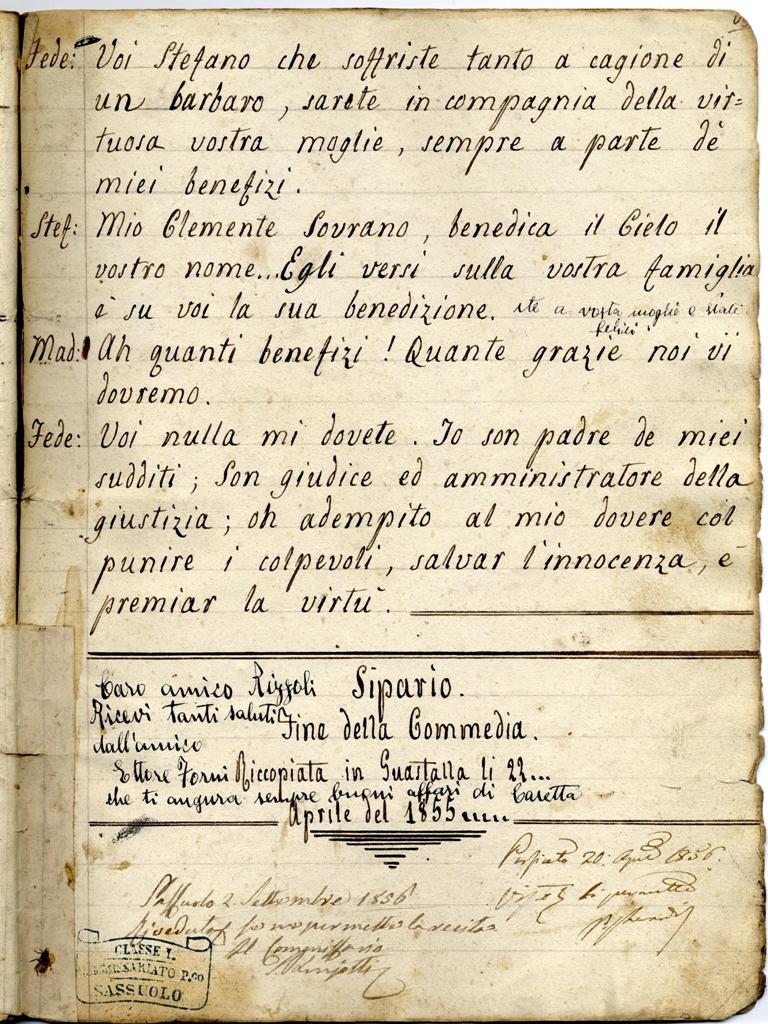 Fede: Voi Stefano che soffriste tanto a cagione di
un barbaro, sarete in compagnia della vir=
tuosa vostra moglie, sempre a parte de
miei benefizi.
Stef: Mio Clemente Sovrano, benedica il Cielo il
vostro nome... Egli versi sulla vostra famiglia
e su voi la sua benedizione. ite a vosta moglie e siate
felici
Mad: Ah quanti benefizi! Quante grazie noi vi
dovremo.
Fede: Voi nulla mi dovete. Io son padre de miei
sudditi; Son giudice ed amministratore della
giustizia; oh adempito al mio dovere col
punire i colpevoli, salvar l'innocenza, e
premiar la virtù.
Sipario.
Fine della Commedia.
Riccopiata in Guastalla li 22...
Aprile del 1855
Caro amico Rizzoli
Ricevi tanti saluti
dall'amico
Ettore Forni
che ti augura sempre buoni affari di Casetta
20 1856
Si permette
Sassuolo 2 Settembre 1856
Riveduto si permette la recita
Il Commissario
CLASSE I.
COMMISSARIATO P.CO
SASSUOLO